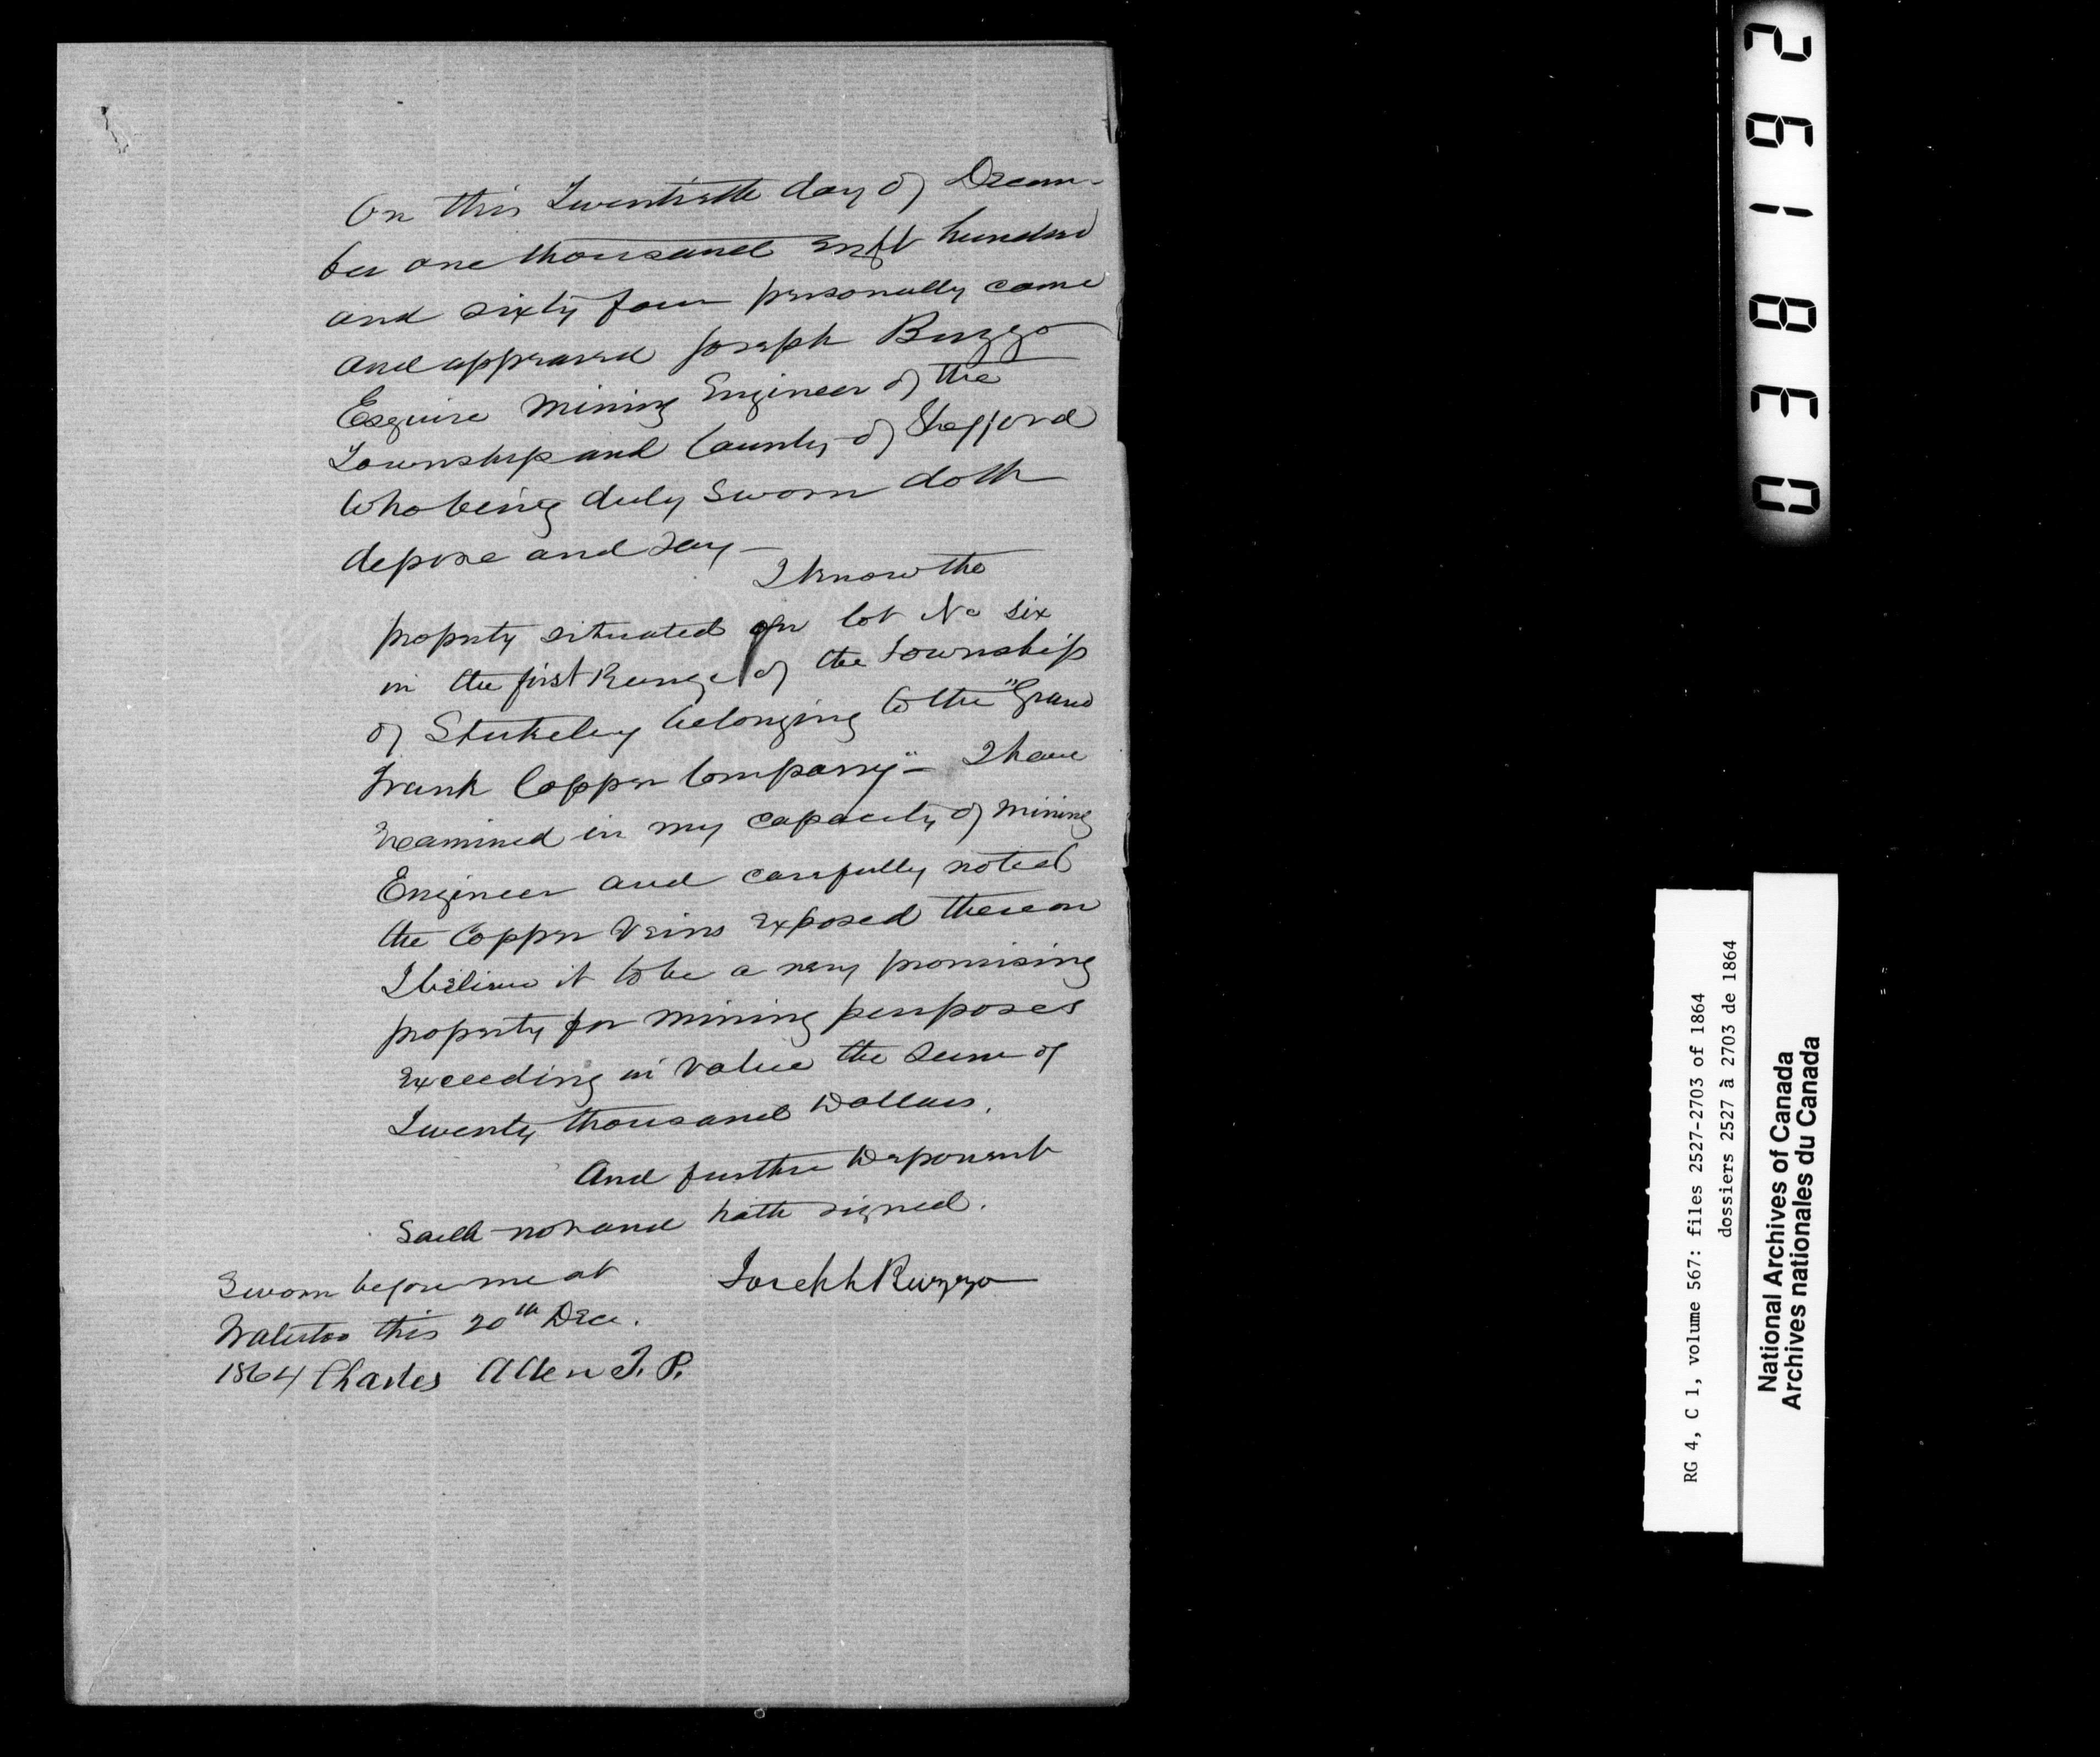 On this Twentieth day of Decem-
ber one thousand eight hundred
and sixty four personally came
and appeared Joseph Buzzo
Esquire Mining Engineer of the
Township and County of Shefford
Who being duly sworn doth
depose and say—
I know the
property situated on lot No six
in the first Range of the township
of Stukeley belonging to the "Grand
Trunk Copper Company"— I have
Examined in my capacity of Mining
Engineer and carefully noted
the Copper Veins Exposed thereon
I believe it to be a very promising
property for mining purposes
Exceeding in value the sum of
Twenty thousand Dollars.
And further Deponent
saith not and hath signed.
Joseph Buzzo
Sworn before me at
Waterloo this 20th Dec.
1864 Charles Allen J. P.
0381912
RG 4, C 1, volume 567: files 2527-2703 of 1864
dossiers 2527 à 2703 de 1864
National Archives of Canada
Archives nationales du Canada